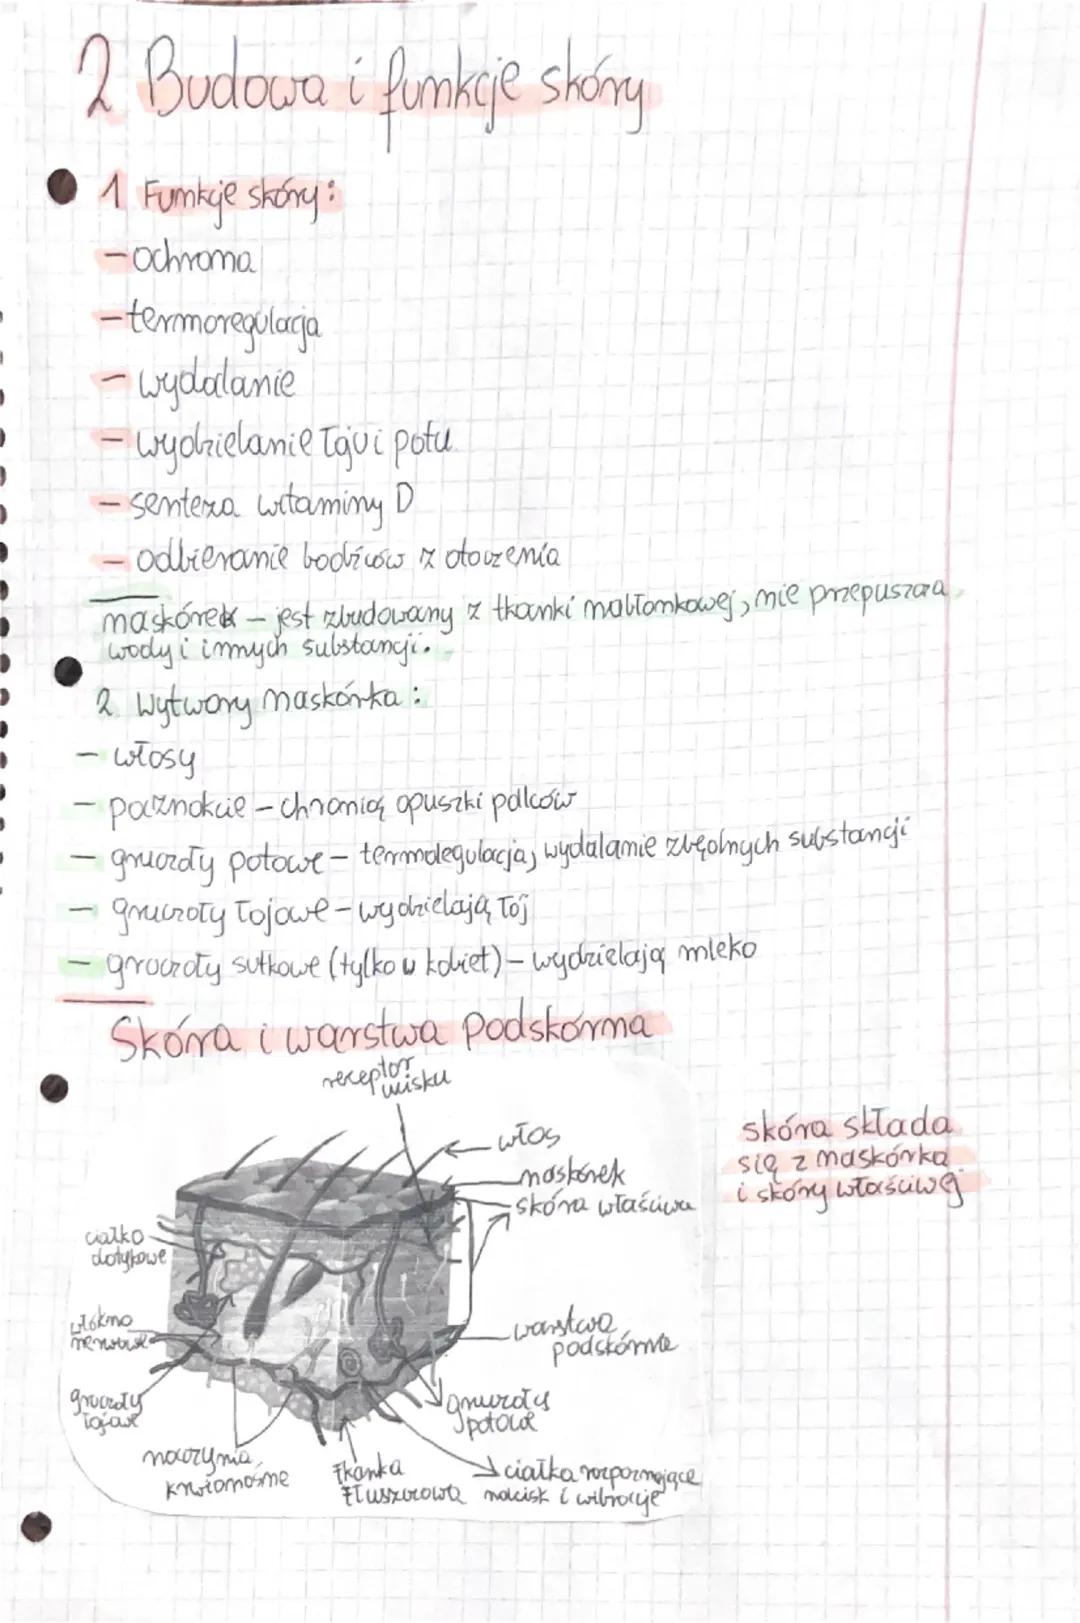 2 Budowa i funkcje skóry
1 Funkcje skóry:
- ochrona
- termoregulacja
- wydalanie
- wydzielanie łoju i potu
- senteza witaminy D
- odbieranie bodźców z otoczenia
naskórek - jest zbudowany z tkanki nabłonkowej, nie przepuszcza
wody i innych substancji.
2 Wytwory naskórka:
- włosy
- paznokcie - chronią opuszki palców
- gruczoły potowe - termolegulacja, wydalanie zbędnych substancji
- gruczoły łojowe - wydzielają łój
- gruczoły sutkowe (tylko u kobiet) - wydzielają mleko
Skóra i warstwa podskórna
receptor
ucisku
włos
naskórek
skóra właściwa
skóra składa
się z naskórka
i skóry właściwej
ciałko
dotykowe
włókno
nerwowe
warstwa
podskórna
gruczoły
łojowe
gruczoły
potowe
naczynia
krwionośne
tkanka
tłuszczowa
ciałka rozpoznające
nacisk i wibracje